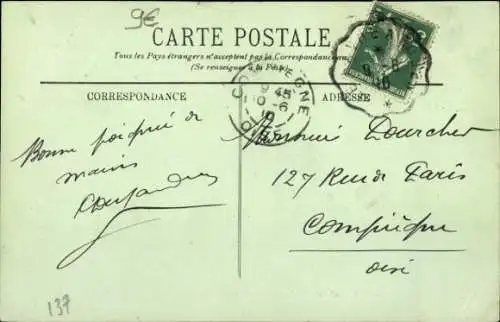 9€
CARTE POSTALE
Tous les Pays étrangers n'acceptent pas la Correspondance au
(Se renseigner à la Poste)
CORRESPONDANCE
ADRESSE
COMPIEGNE
9 45
10 -6
OISE
Bonne poignée de
mains
Monsieur Dourcher
127 Rue de Paris
Compiègne
oise
137